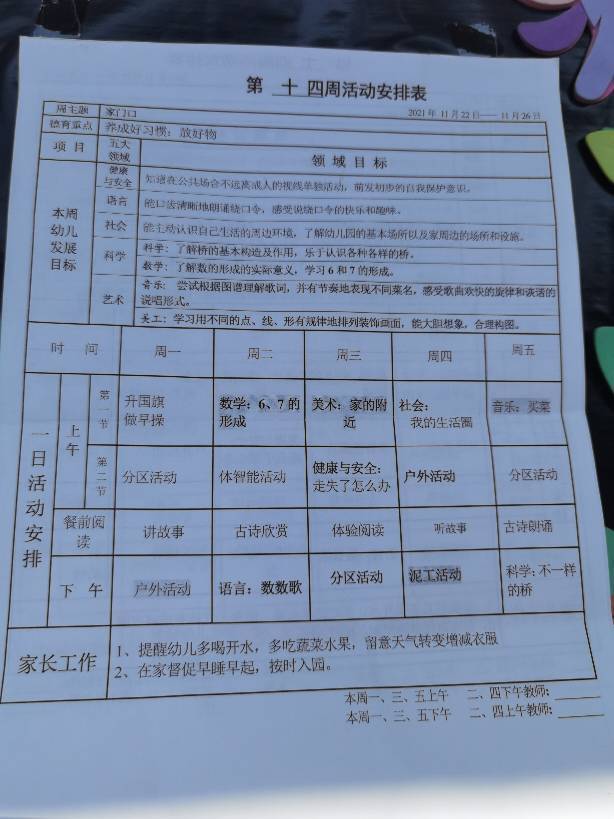 第 十 四周活动安排表
周主题 家门口 2021年11月22日——11月26日
德育重点 养成好习惯：放好物
项目 五大领域 领域目标
本周幼儿发展目标
健康与安全 知道在公共场合不远离成人的视线单独活动，萌发初步的自我保护意识。
语言 能口齿清晰地朗诵绕口令，感受说绕口令的快乐和趣味。
社会 能主动认识自己生活的周边环境，了解幼儿园的基本场所以及家周边的场所和设施。
科学 科学：了解桥的基本构造及作用，乐于认识各种各样的桥。
数学：了解数的形成的实际意义，学习6和7的形成。
艺术 音乐：尝试根据图谱理解歌词，并有节奏地表现不同菜名，感受歌曲欢快的旋律和诙谐的
说唱形式。
美工：学习用不同的点、线、形有规律地排列装饰画面，能大胆想象，合理构图。
时间 周一 周二 周三 周四 周五
一日活动安排
上午
第一节 升国旗 做早操 数学：6、7的形成 美术：家的附近 社会：我的生活圈 音乐：买菜
第二节 分区活动 体智能活动 健康与安全：走失了怎么办 户外活动 分区活动
餐前阅读 讲故事 古诗欣赏 体验阅读 听故事 古诗朗诵
下午 户外活动 语言：数数歌 分区活动 泥工活动 科学：不一样的桥
家长工作
1、提醒幼儿多喝开水，多吃蔬菜水果，留意天气转变增减衣服
2、在家督促早睡早起，按时入园。
本周一、三、五上午 二、四下午教师：
本周一、三、五下午 二、四上午教师：